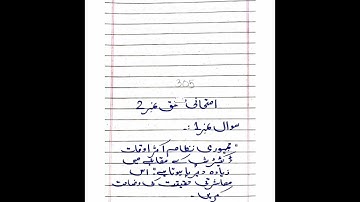 305
امتحانی مشق نمبر 2
سوال نمبر 1 :-
"جمہوری نظام اکثر اوقات
ڈکٹیٹرشپ کے مقابلے میں
زیادہ دیرپا ہوتا ہے" اس
معاشرتی حقیقت کی وضاحت
کریں -